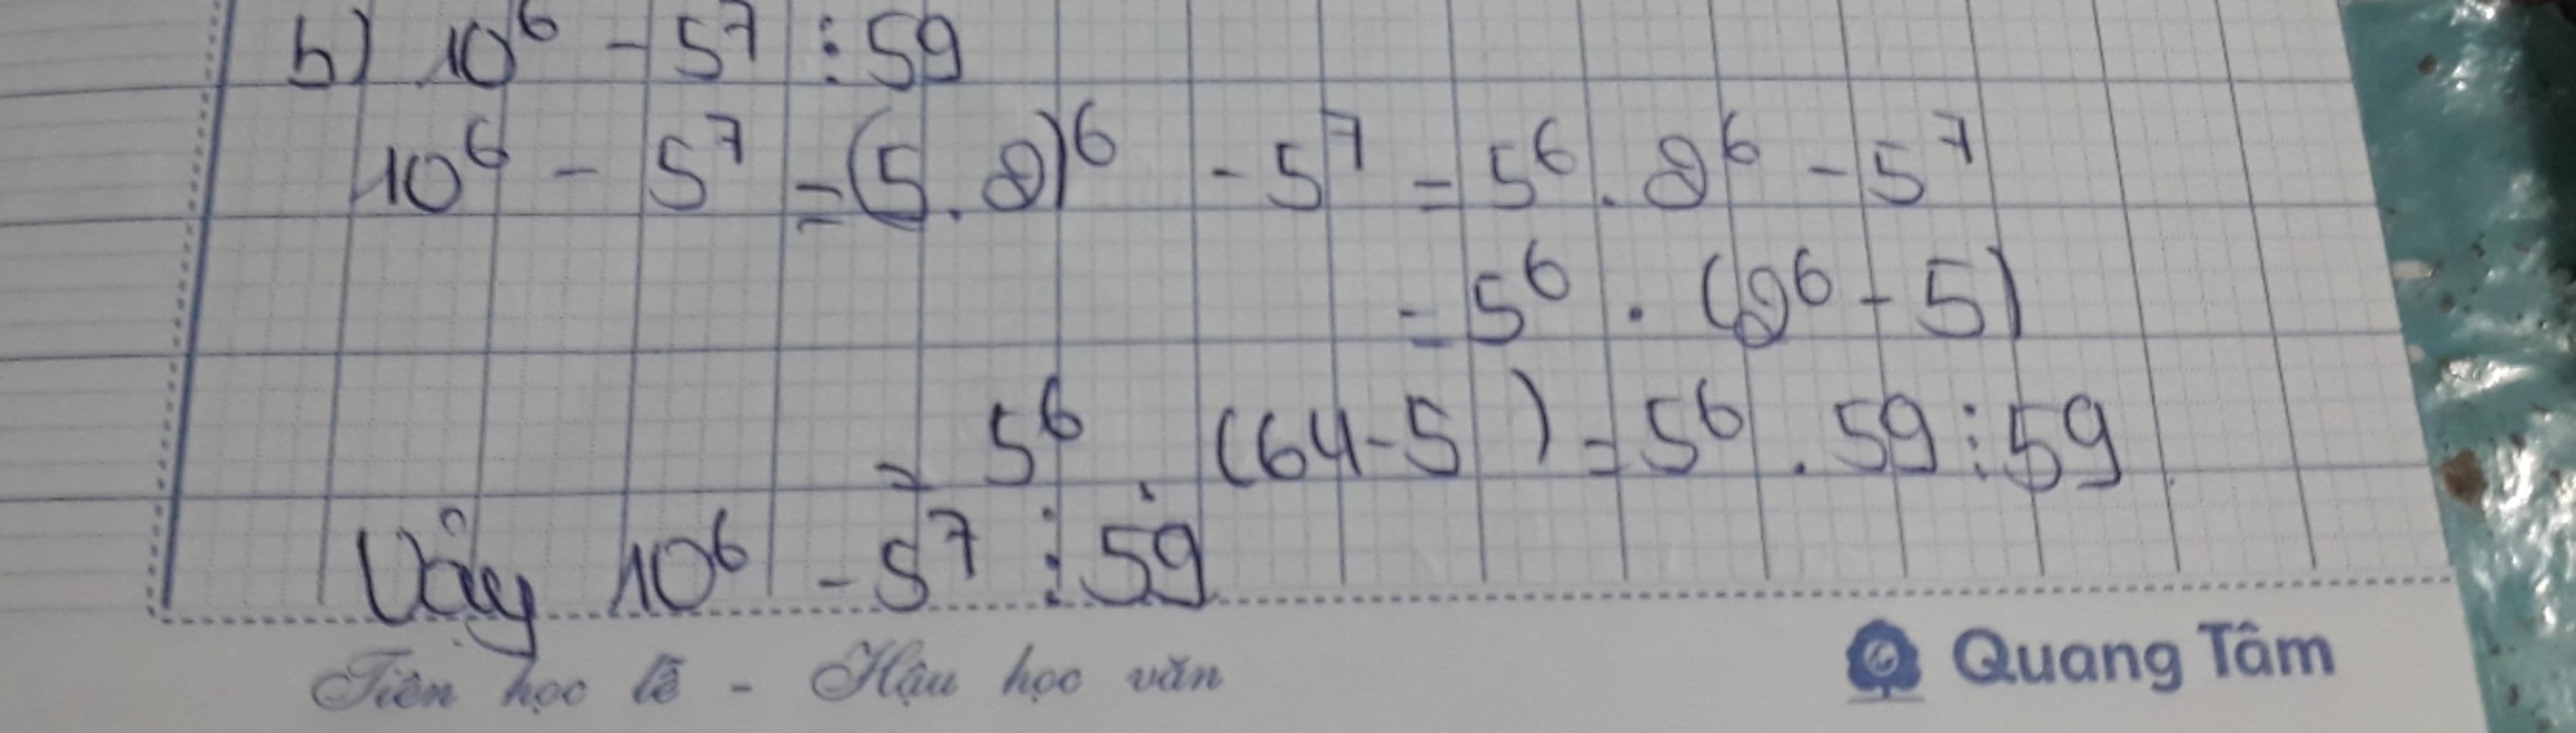 b) 10⁶ - 5⁷ ⋮ 59
10⁶ - 5⁷ = (5.2)⁶ - 5⁷ = 5⁶ . 2⁶ - 5⁷
= 5⁶ . (2⁶ - 5)
= 5⁶ . (64 - 5) = 5⁶ . 59 ⋮ 59
Vậy 10⁶ - 5⁷ ⋮ 59
Tiên học lễ - Hậu học văn
Quang Tâm